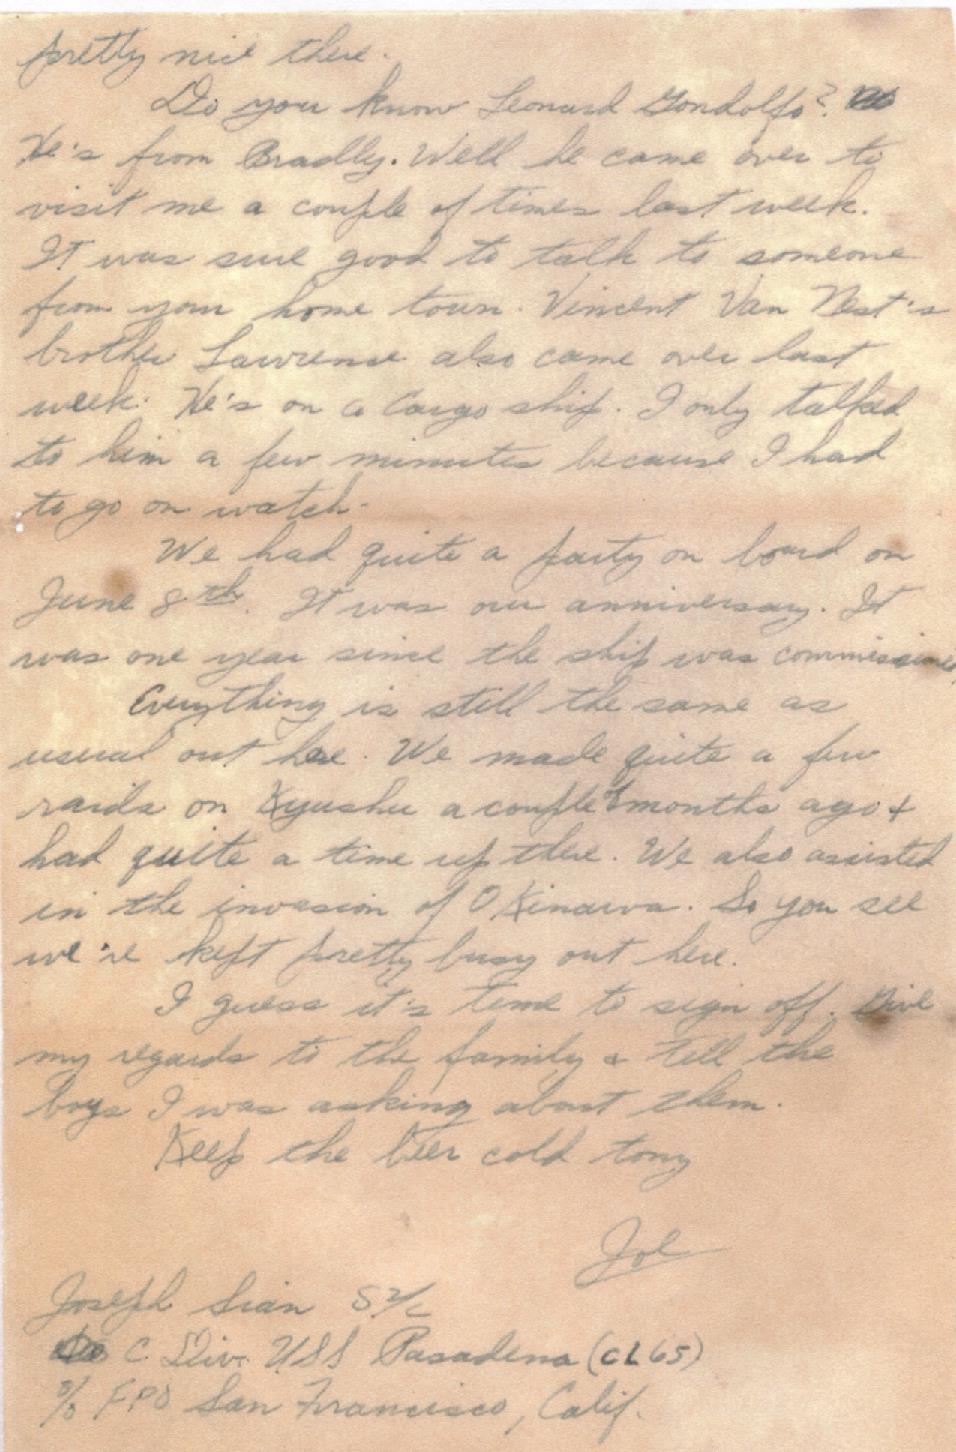 pretty nice there.
Do you know Leonard Gondolfo?
He's from Bradly. Well he came over to
visit me a couple of times last week.
It was sure good to talk to someone
from your home town. Vincent Van Nest's
brother Lawrence also came over last
week. He's on a Cargo ship. I only talked
to him a few minutes because I had
to go on watch.
We had quite a party on board on
June 8th. It was our anniversary. It
was one year since the ship was commissioned.
Everything is still the same as
usual out here. We made quite a few
raids on Kyushu a couple of months ago &
had quite a time up there. We also assisted
in the invasion of OKinawa. So you see
we're kept pretty busy out here.
I guess it's time to sign off. Give
my regards to the family & tell the
boys I was asking about them.
Keep the beer cold tony
Joe
Joseph Sian S2/c
C. Div. USS Pasadena (CL65)
c/o F.P.O San Francisco, Calif.